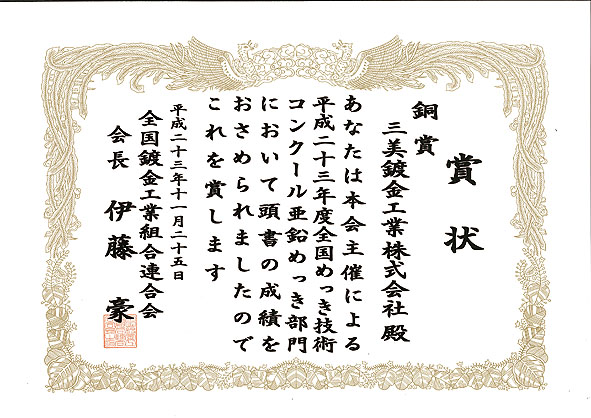 賞状
銅賞
三美鍍金工業株式会社殿
あなたは本会主催による
平成二十三年度全国めっき技術
コンクール亜鉛めっき部門
において頭書の成績を
おさめられましたので
これを賞します
平成二十三年十一月二十五日
全国鍍金工業組合連合会
会長 伊藤豪